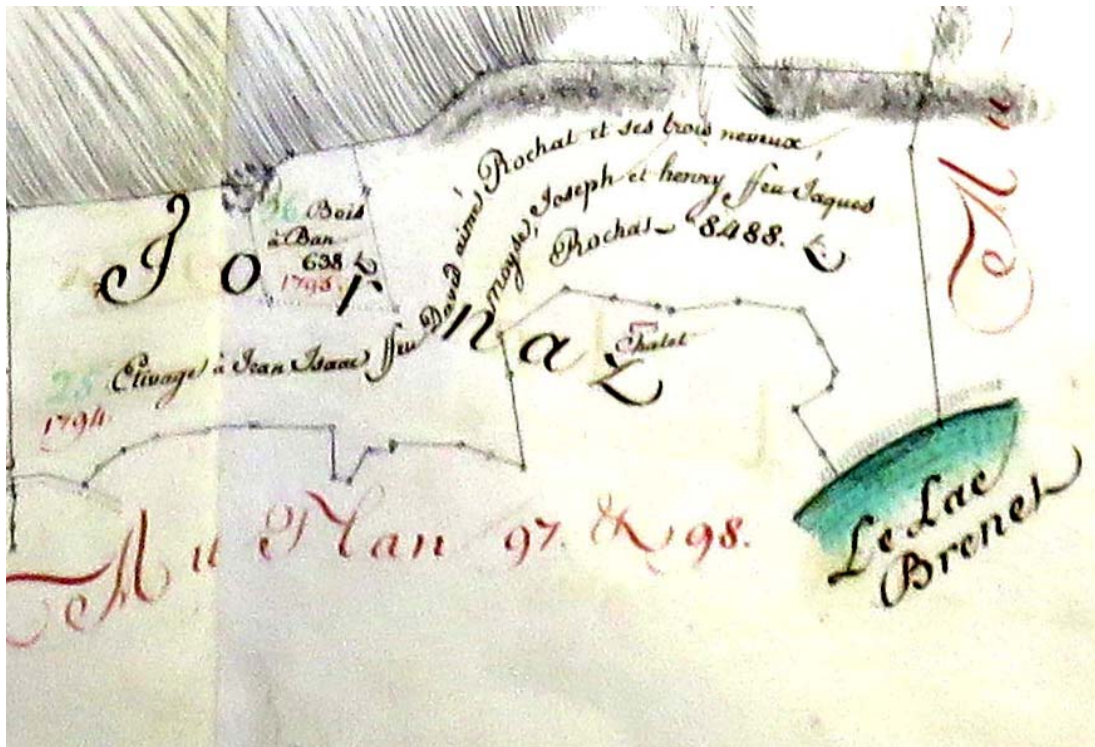 Jornaz
26 Bois
à Ban
638 t.
1795.
25 Etivage à Jean Isaac ffeu David aimé Rochat et ses trois neveux,
moyse, Joseph et henry ffeu Jaques
Rochat 8488. t.
1794
Chalet
Au Plan 97. & 98.
Le Lac
Brenet
Au